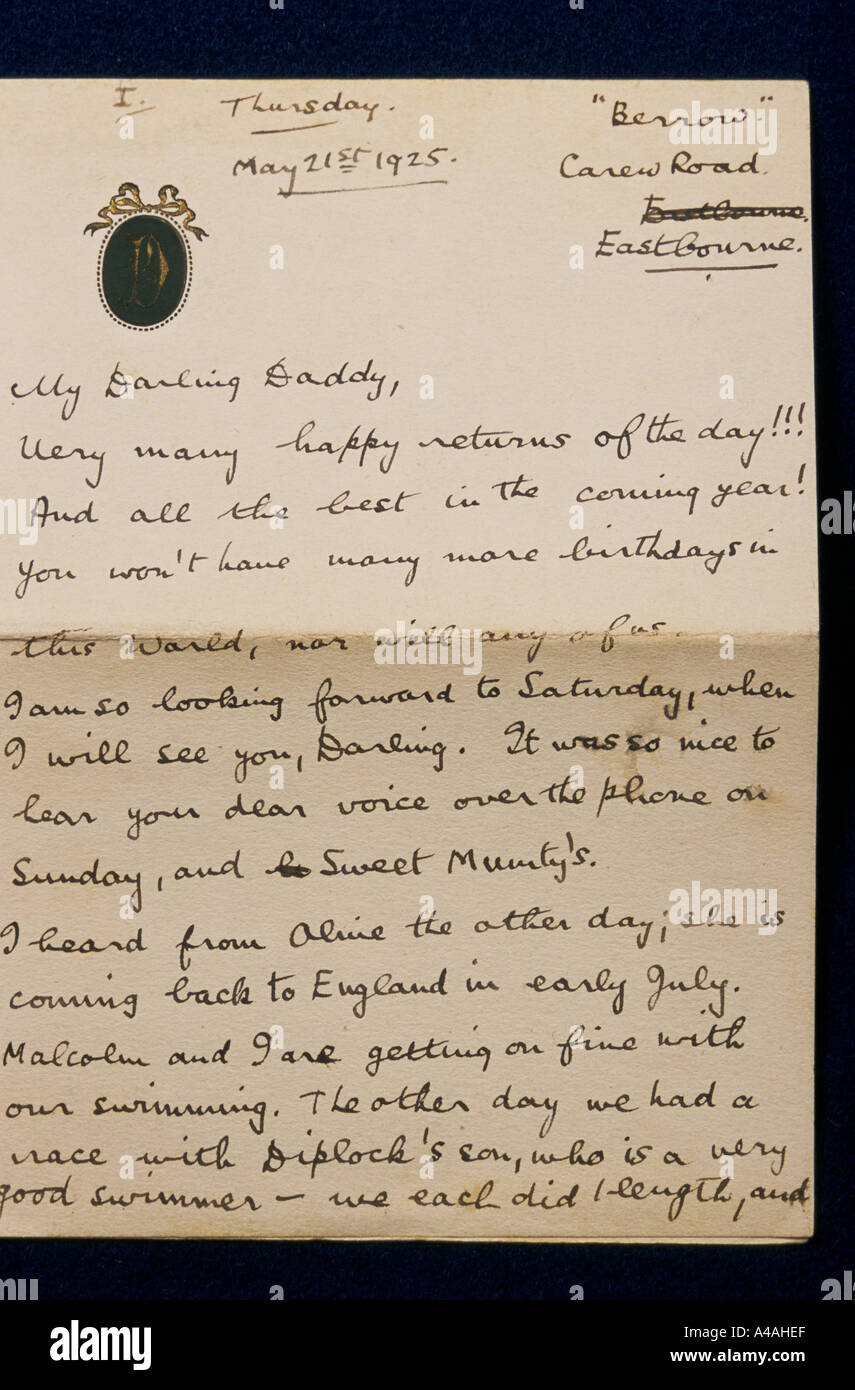 I. Thursday. "Berrow."
May 21st 1925. Carew Road.
Eastbourne.
Eastbourne.
D
My Darling Daddy,
Very many happy returns of the day!!!
And all the best in the coming year!
You won't have many more birthdays in
this World, nor will any of us.
I am so looking forward to Saturday, when
I will see you, Darling. It was so nice to
hear your dear voice over the phone on
Sunday, and Sweet Mumty's.
I heard from Olive the other day; she is
coming back to England in early July.
Malcolm and I are getting on fine with
our swimming. The other day we had a
race with Diplock's son, who is a very
good swimmer — we each did 1-length, and
alamy
a
Image ID: A4AHEF
www.alamy.com